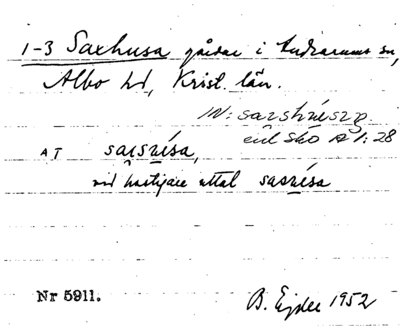 1-3 Saxhusa gårdar i Andrarums sn,
Albo hd, Krist. län.
enl Sko A 1:28
AT
vid hastigare uttal
Nr 5911.
B. Ejder 1952